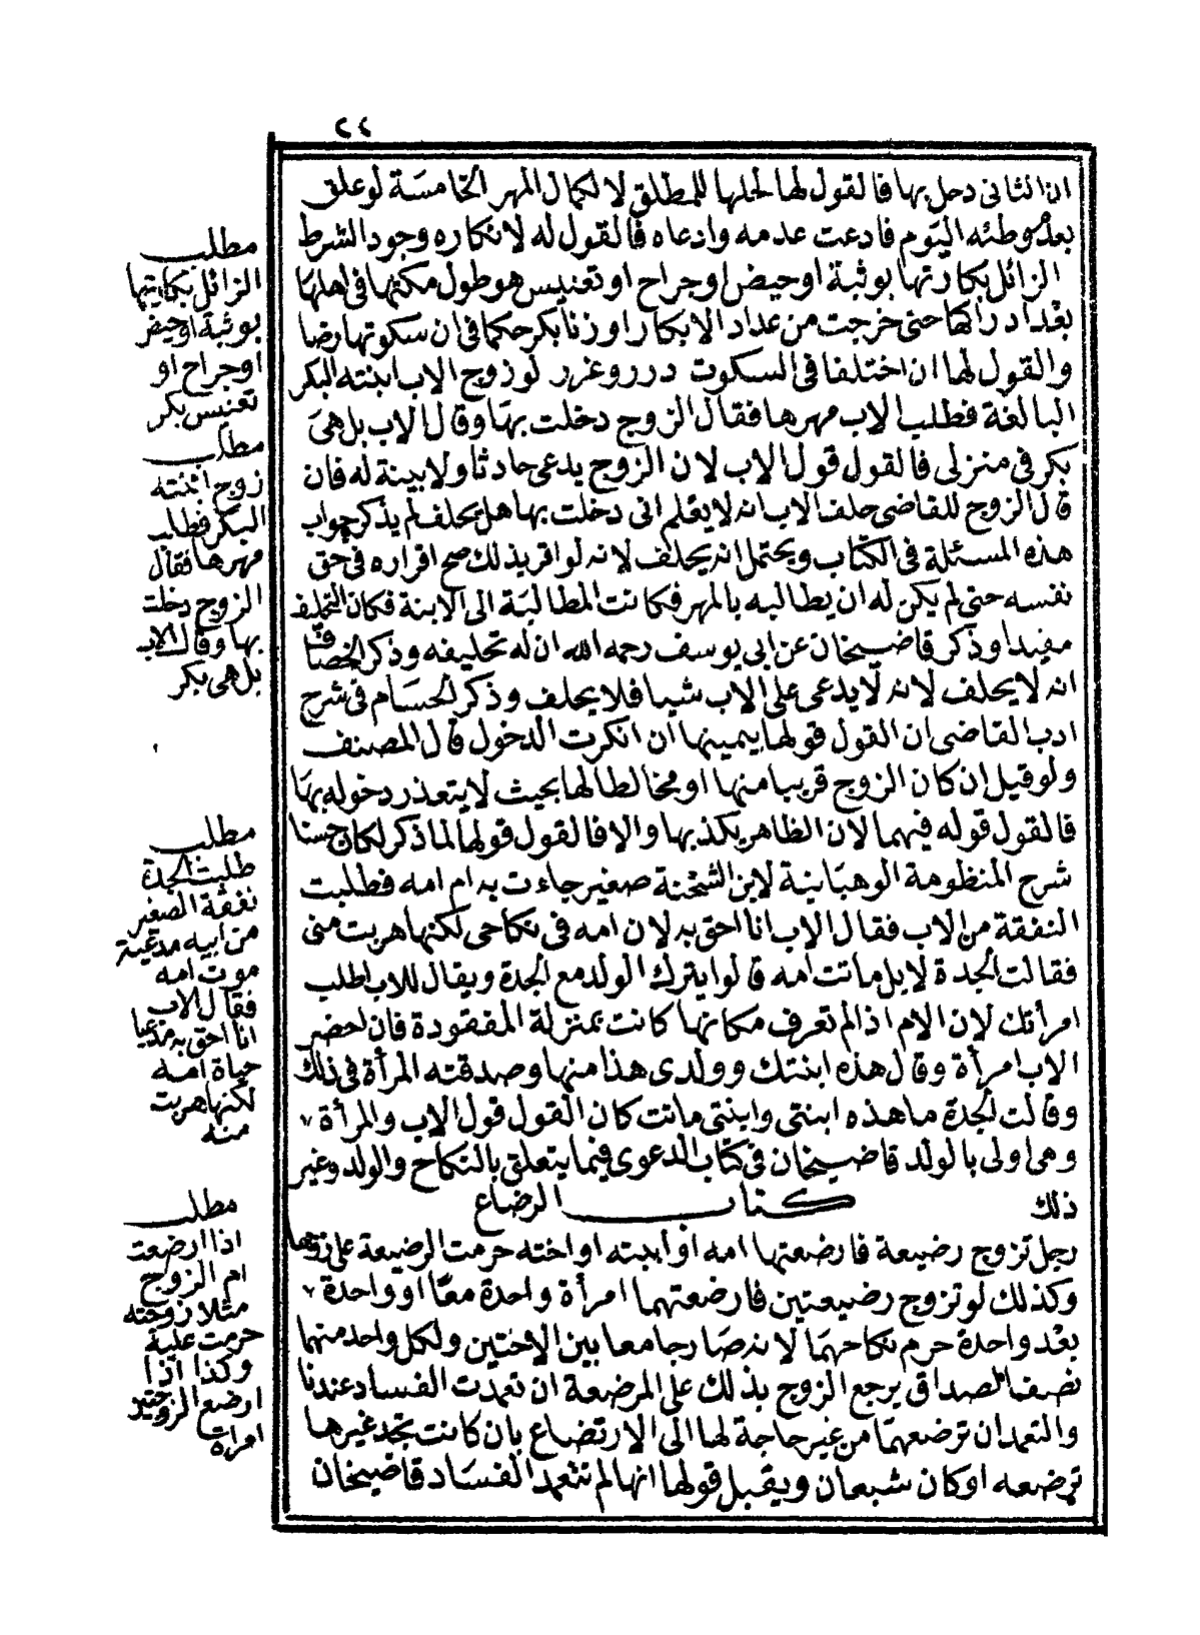 ٢٢
ان الثانى دخل بها فالقول لها لحلها للمطلق لا لكمال المهر الخامسة لو علق
بعدم وطئه اليوم فادعت عدمه وادعاه فالقول له لانكاره وجود الشرط
الزائل بكارتها بوثبة او حيض او جراح او تعنيس هو طول مكثها فى اهلها
بعد ادراكها حتى خرجت من عداد الابكار او زنا بكر حكما فى ان سكوتها رضا
والقول لها ان اختلفا فى السكوت درر وغرر لو زوج الاب ابنته البكر
البالغة فطلب الاب مهرها فقال الزوج دخلت بها وقال الاب بل هى
بكر فى منزلى فالقول قول الاب لان الزوج يدعى حادثا ولا بينة له فان
قال الزوج للقاضى حلف الاب انه لا يعلم انى دخلت بها هل يحلف لم يذكر جواب
هذه المسئلة فى الكتاب ويحتمل انه يحلف لانه لو اقر بذلك صح اقراره فى حق
نفسه حتى لم يكن له ان يطالبه بالمهر فكانت المطالبة الى الابنة فكان التحليف
مفيدا وذكر قاضيخان عن ابى يوسف رحمه الله ان له تحليفه وذكر الخصاف
انه لا يحلف لانه لا يدعى على الاب شيا فلا يحلف وذكر الحسام فى شرح
ادب القاضى ان القول قولها بيمينها ان انكرت الدخول قال المصنف
ولو قيل ان كان الزوج قريبا منها او مخالطا لها بحيث لا يتعذر دخوله بها
فالقول قوله فيهما لان الظاهر يكذبها والا فالقول قولها لما ذكر لكان حسنا
شرح المنظومة الوهبانية لابن الشحنة صغير جاءت به ام امه فطلبت
النفقة من الاب فقال الاب انا احق به لان امه فى نكاحى لكنها هربت منى
فقالت الجدة لا بل ماتت امه قالوا يترك الولد مع الجدة ويقال للاب اطلب
امرأتك لان الام اذا لم تعرف مكانها كانت بمنزلة المفقودة فان احضر
الاب امرأة وقال هذه ابنتك وولدى هذا منها وصدقته المرأة فى ذلك
وقالت الجدة ما هذه ابنتى وابنتى ماتت كان القول قول الاب والمرأة
وهى اولى بالولد قاضيخان فى كتاب الدعوى فيما يتعلق بالنكاح والولد وغير
ذلك كتاب الرضاع
رجل تزوج رضيعة فارضعتها امه او ابنته او اخته حرمت الرضيعة على زوجها
وكذلك لو تزوج رضيعتين فارضعتهما امرأة واحدة معا او واحدة
بعد واحدة حرم نكاحهما لانه صار جامعا بين الاختين ولكل واحد منهما
نصف الصداق يرجع الزوج بذلك على المرضعة ان تعمدت الفساد عندنا
والتعمد ان ترضعهما من غير حاجة لها الى الارتضاع بان كانت تجد غيرها
ترضعه او كان شبعان ويقبل قولها انها لم تتعمد الفساد قاضيخان
مطلب
الزائل بكارتها
بوثبة او حيض
او جراح او
تعنيس بكر
مطلب
زوج ابنته
البكر فطلب
مهرها فقال
الزوج دخلت
بها وقال الاب
بل هى بكر
مطلب
طلبت الجدة
نفقة الصغير
من ابيه مدعية
موت امه
فقال الاب
انا احق به مدعيا
حياة امه
لكنها هربت
منه
مطلب
اذا ارضعت
ام الزوج
مثلا زوجته
حرمت عليه
وكذا اذا
ارضع الزوجتين
امراة